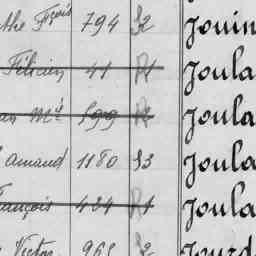 the Fçois 794 S2 Jouin
Félicien 41 R1 Joula
an Mel 599 R2 Joula
Amand 1180 S3 Joula
François 424 R1 Joula
Victor 965 S2 Jourd